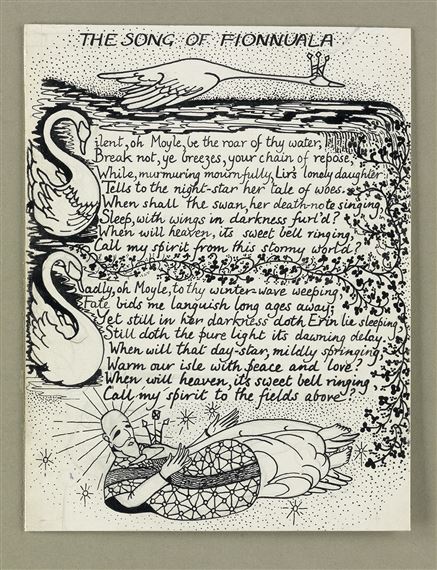 THE SONG OF FIONNUALA
Silent, oh Moyle, be the roar of thy water,
Break not, ye breezes, your chain of repose,
While, murmuring mournfully, Lir's lonely daughter
Tells to the night-star her tale of woes.
When shall the swan, her death-note singing,
Sleep, with wings in darkness furl'd?
When will heaven, its sweet bell ringing,
Call my spirit from this stormy world?
Sadly, oh Moyle, to thy winter-wave weeping,
Fate bids me languish long ages away;
Yet still in her darkness doth Erin lie sleeping
Still doth the pure light its dawning delay.
When will that day-star, mildly springing
Warm our isle with peace and love?
When will heaven, its sweet bell ringing
Call my spirit to the fields above?